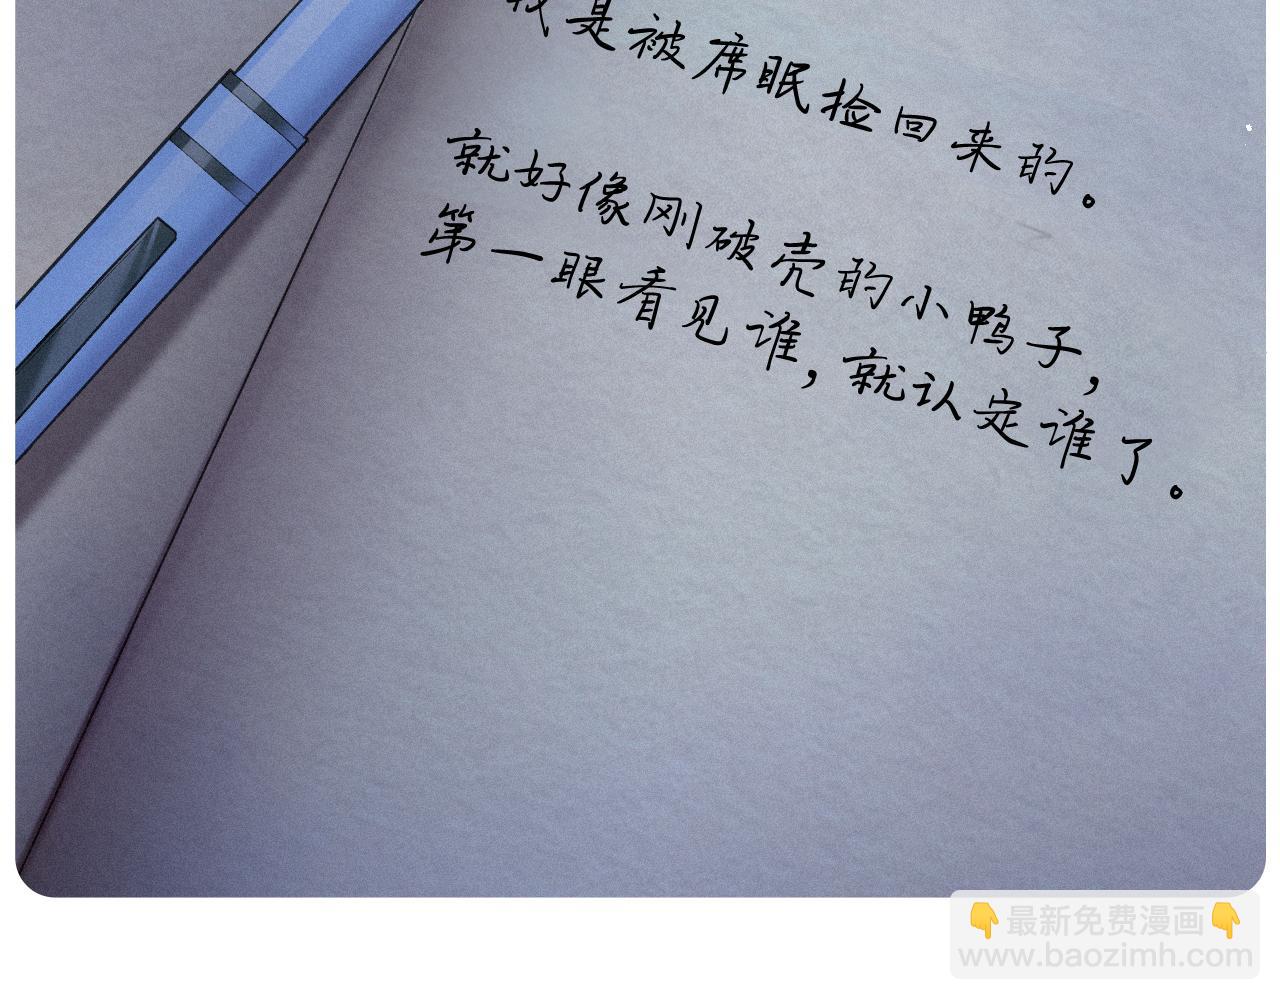 我是被席眠捡回来的。
就好像刚破壳的小鸭子，
第一眼看见谁，就认定谁了。
👇最新免费漫画👇
www.baozimh.com